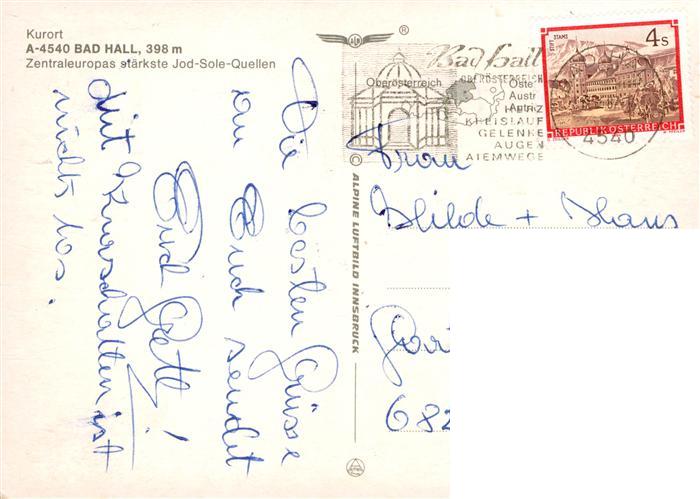 Kurort
A-4540 BAD HALL, 398 m
Zentraleuropas stärkste Jod-Sole-Quellen
Die besten Grüsse
an Euch sendet
Eure
mit
ist
nichts los.
ALPINE LUFTBILD INNSBRUCK
Bad Hall
OBERÖSTERREICH
Oberösterreich
HERZ
KREISLAUF
GELENKE
AUGEN
ATEMWEGE
4540
STIFT STAMS
4 S
REPUBLIK ÖSTERREICH
Frau
Hilde + Hans
682